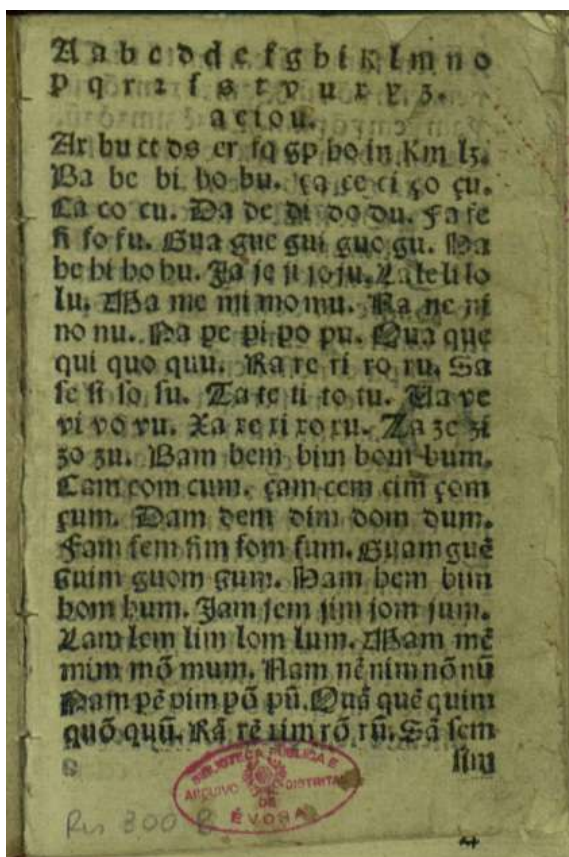 A a b c d d e f g h i k l m n o
p q r ꝛ ſ s t v u x y z.
a e i o u.
Ar bu ct ds er fq gp ho in Km lz.
Ba be bi bo bu. ça ce ci ço çu.
Ca co cu. Da de di do du. Fa fe
fi fo fu. Gua gue gui guo gu. Ha
he hi ho hu. Ja je ji jo ju. La le li lo
lu. Ma me mi mo mu. Na ne ni
no nu. Pa pe pi po pu. Qua que
qui quo quu. Ra re ri ro ru. Sa
ſe ſi ſo ſu. Ta te ti to tu. Va ve
vi vo vu. Xa xe xi xo xu. Za ze zi
zo zu. Bam bem bim bom bum.
Cam com cum. çam cem cim çom
çum. Dam dem dim dom dum.
Fam fem fim fom fum. Guam guẽ
guim guom gum. Ham hem him
hom hum. Jam jem jim jom jum.
Lam lem lim lom lum. Mam mẽ
mim mõ mum. Nam nẽ nim nõ nũ
Pam pẽ pim põ pũ. Quã quẽ quim
quõ quũ. Rã rẽ rim rõ rũ. Sã ſem
ſim
BIBLIOTECA PUBLICA E
ARQUIVO DISTRITAL
DE
ÉVORA
Res 300 B